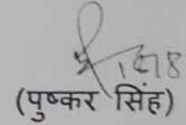 (पुष्कर सिंह)